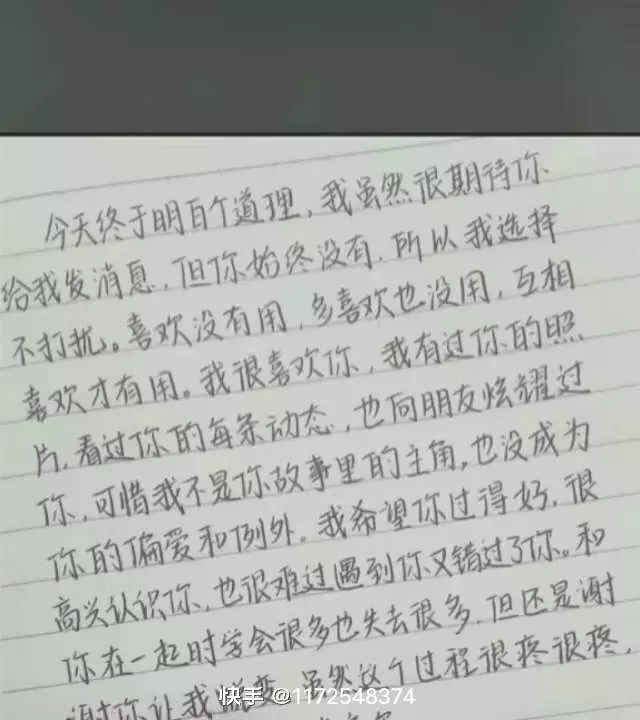 今天终于明白个道理，我虽然很期待你
给我发消息，但你始终没有，所以我选择
不打扰。喜欢没有用，多喜欢也没用，互相
喜欢才有用。我很喜欢你，我有过你的照
片，看过你的每条动态，也向朋友炫耀过
你，可惜我不是你故事里的主角，也没成为
你的偏爱和例外。我希望你过得好，很
高兴认识你，也很难过遇到你又错过了你。和
你在一起时学会很多也失去很多，但还是谢
谢你让我蜕变，虽然这个过程很疼很疼，
快手 @1172548374